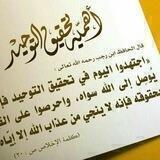 أهمية تحقيق التوحيد
قال الحافظ ابن رجب رحمه الله تعالى :
"اجتهدوا اليوم في تحقيق التوحيد فإ
يوصل إلى الله سواه، واحرصوا على الق
بحقوقه فإنه لا ينجي من عذاب الله إلا إيّاه
(كلمة الإخلاص ص